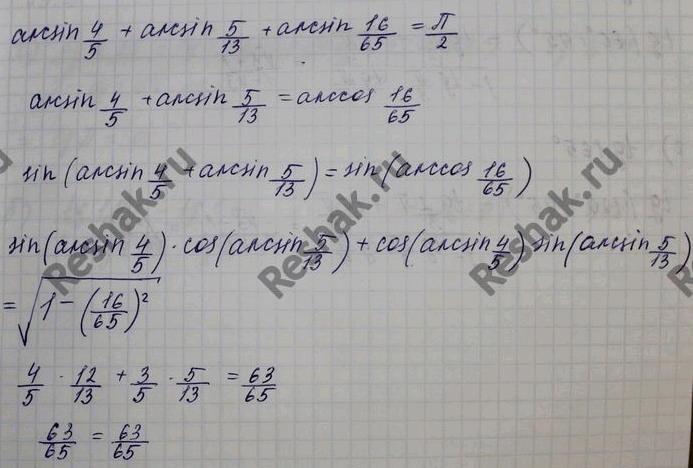 arcsin 4/5 + arcsin 5/13 + arcsin 16/65 = π/2
arcsin 4/5 + arcsin 5/13 = arccos 16/65
sin(arcsin 4/5 + arcsin 5/13) = sin(arccos 16/65)
sin(arcsin 4/5) · cos(arcsin 5/13) + cos(arcsin 4/5) sin(arcsin 5/13)
= √(1 - (16/65)²)
4/5 · 12/13 + 3/5 · 5/13 = 63/65
63/65 = 63/65
Reshak.ru
Reshak.ru
Reshak.ru